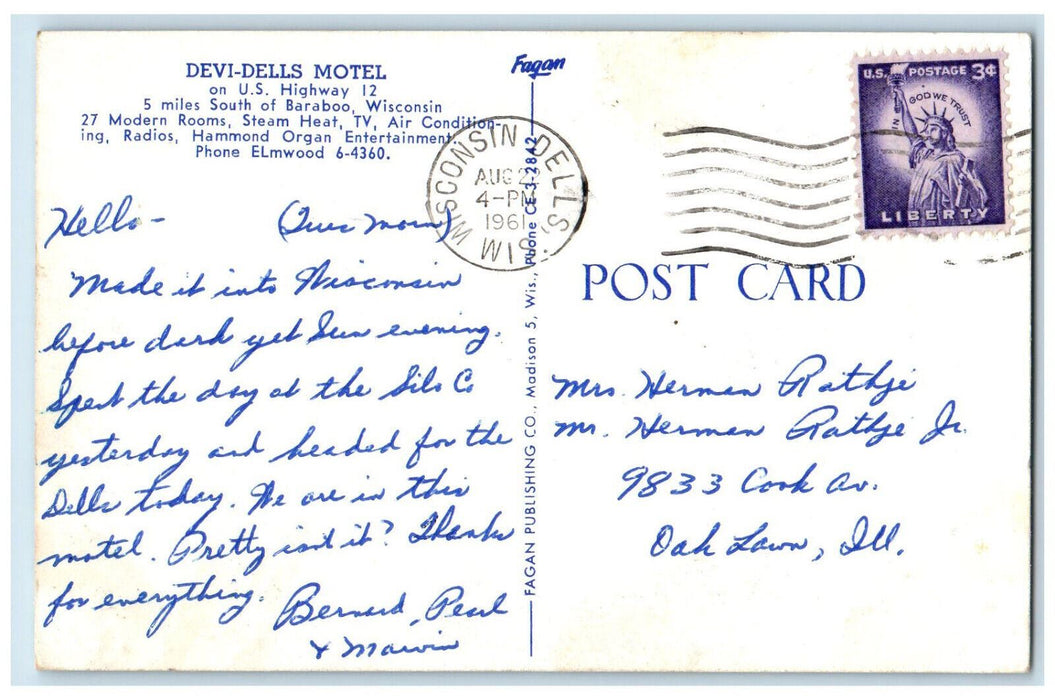 DEVI-DELLS MOTEL
on U.S. Highway 12
5 miles South of Baraboo, Wisconsin
27 Modern Rooms, Steam Heat, TV, Air Condition-
ing, Radios, Hammond Organ Entertainment
Phone ELmwood 6-4360.
Hello - (Tues morn)
Made it into Wisconsin
before dark yet Sun evening.
Spent the day at the Silo Co
yesterday and headed for the
Dells today. We are in this
motel. Pretty isn't it? Thanks
for everything.
Bernard, Pearl
& Marvin
Fagan
FAGAN PUBLISHING CO., Madison 5, Wis., Phone CE-3-2842
WISCONSIN DELLS WIS.
AUG 2
4-PM
1961
U.S. POSTAGE 3¢
IN GOD WE TRUST
LIBERTY
POST CARD
Mrs. Herman Rathje
Mr. Herman Rathje Jr.
9833 Cook Av.
Oak Lawn, Ill.